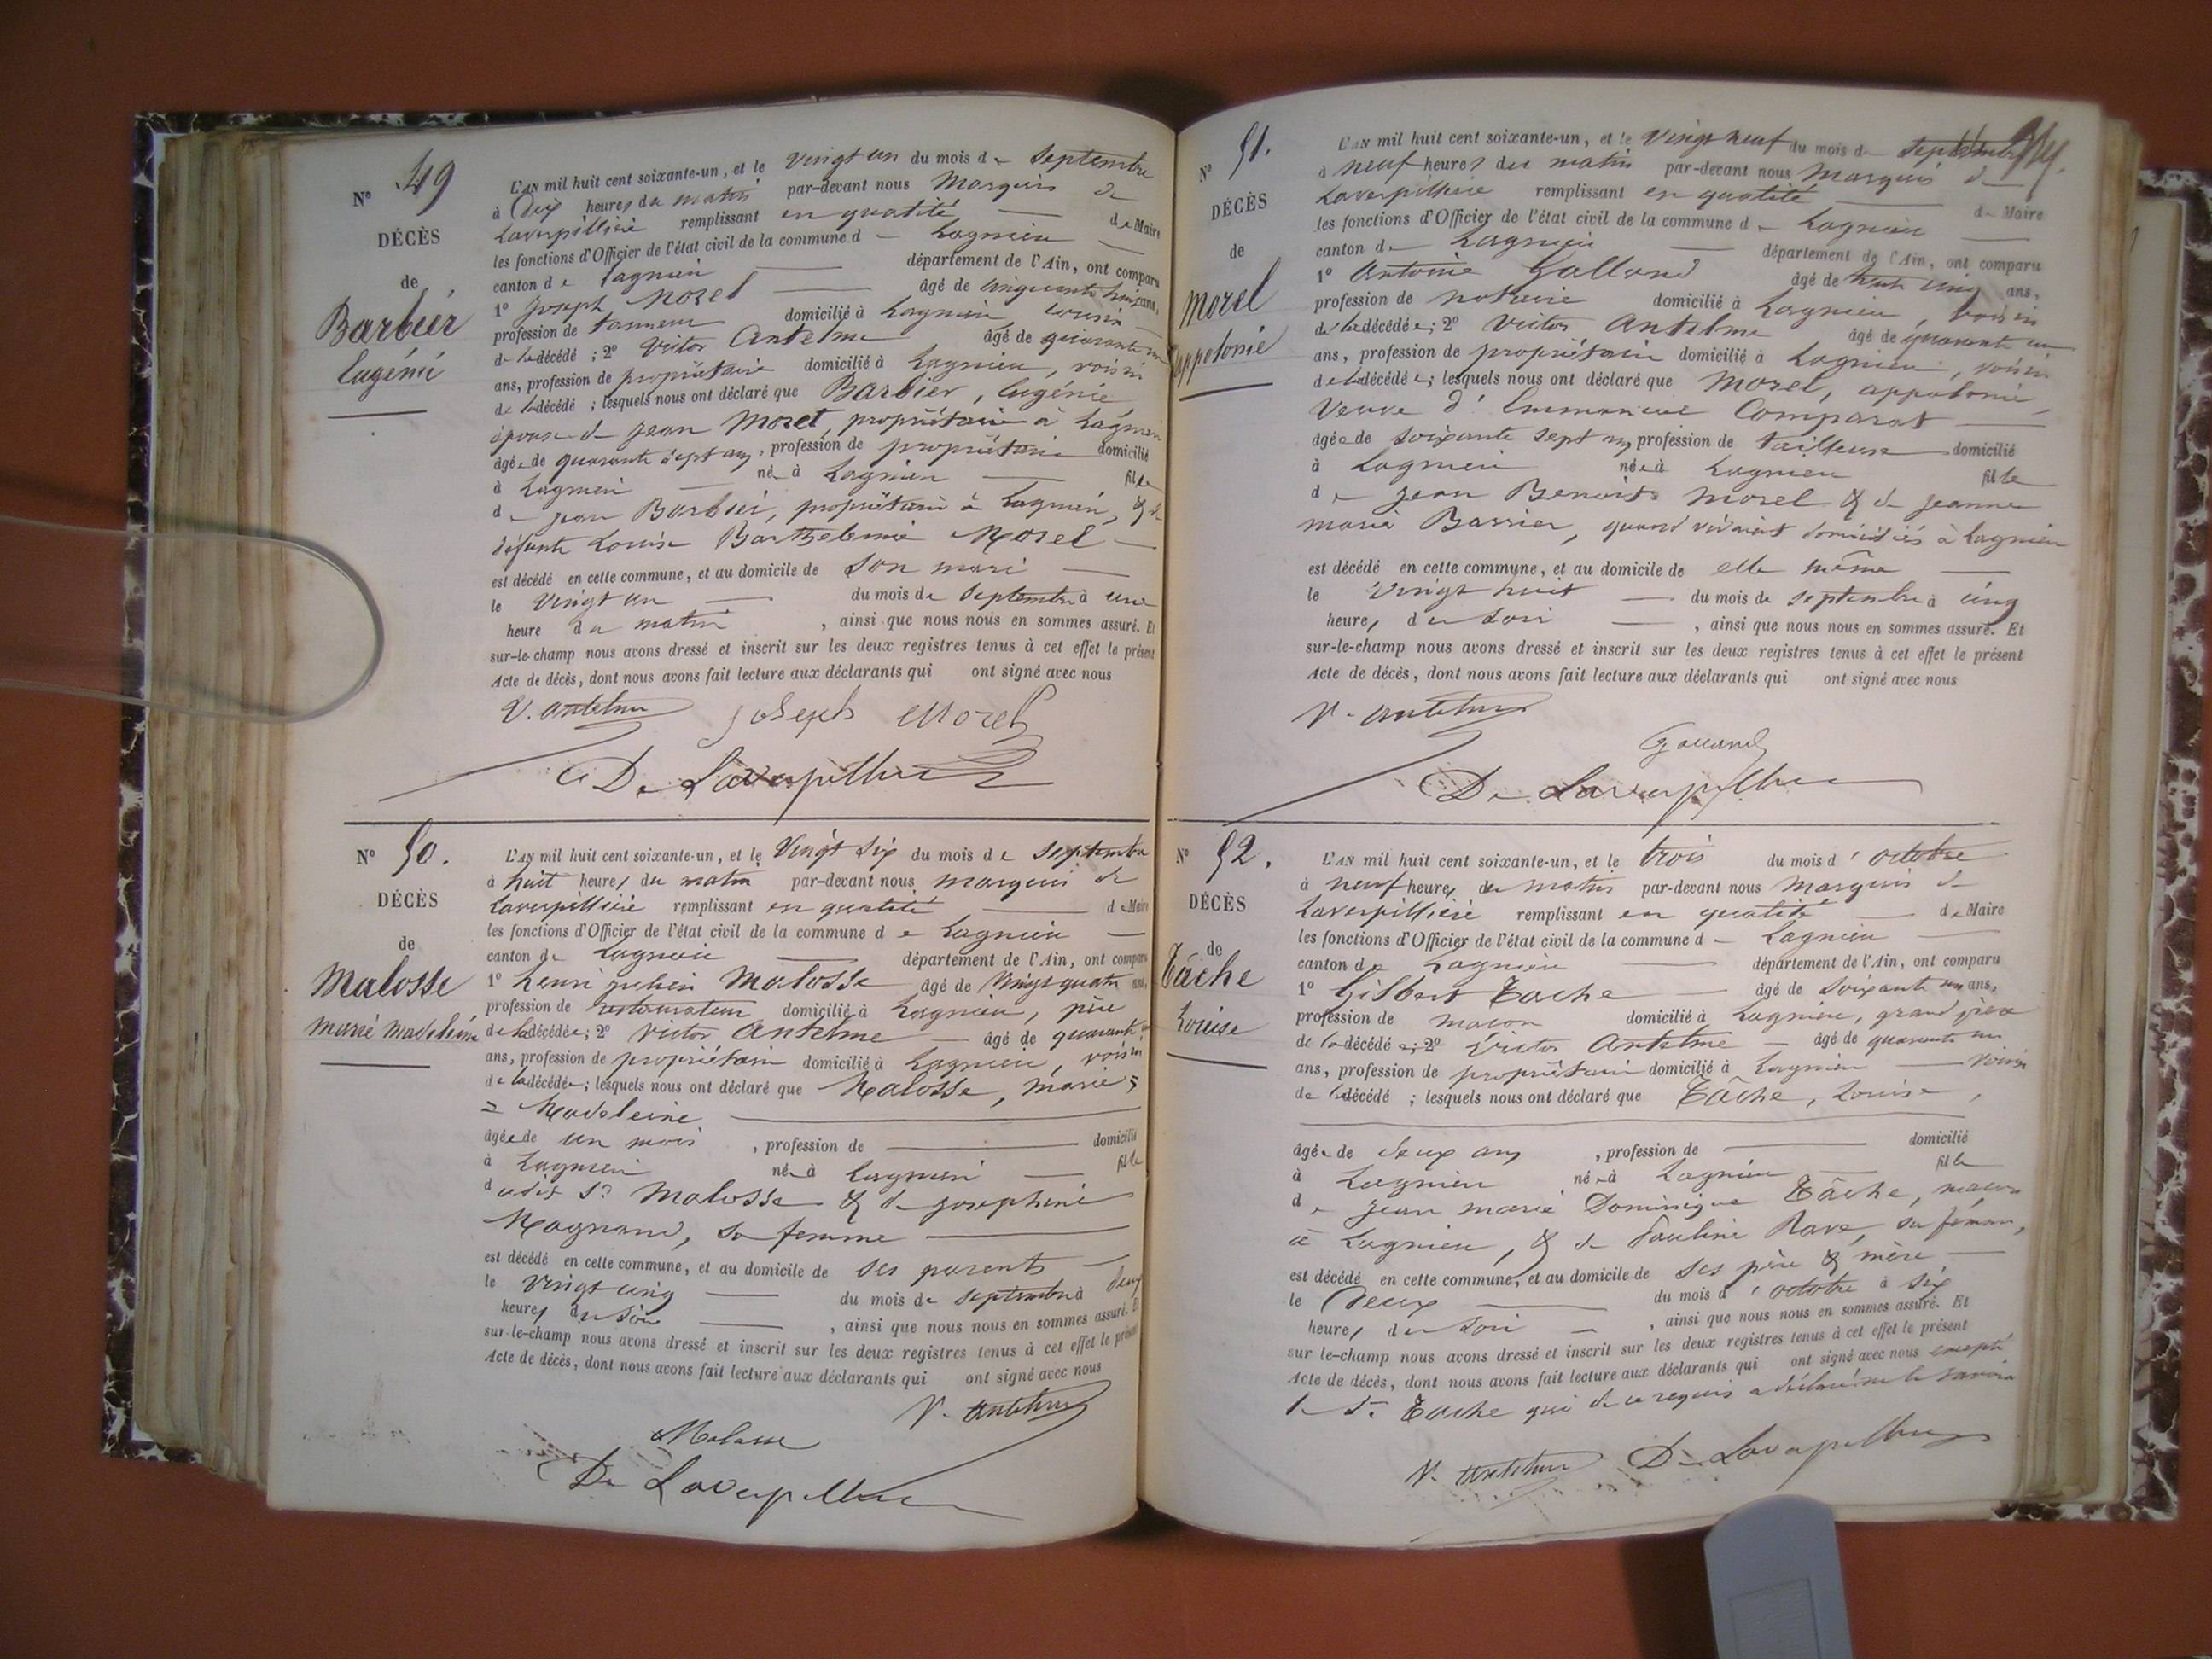 N° 49
DÉCÈS
de
Barbier
Eugénie
L'AN mil huit cent soixante-un, et le vingt un du mois de Septembre
à Dix heures du matin par-devant nous Marquis de
Laverpillière remplissant en qualité de Maire
les fonctions d'Officier de l'état civil de la commune de Lagnieu
canton de Lagnieu département de l'Ain, ont comparu
1° Joseph Morel âgé de cinquante huit ans,
profession de tanneur domicilié à Lagnieu, cousin
de la décédé ; 2° Victor Antelme âgé de quarante un
ans, profession de propriétaire domicilié à Lagnieu, voisin
de la décédé ; lesquels nous ont déclaré que Barbier, Eugénie
épouse de Jean Morel, propriétaire à Lagnieu
âgée de quarante sept ans, profession de propriétaire domicilié
à Lagnieu née à Lagnieu fille
de Jean Barbier, propriétaire à Lagnieu, & de
défunte Louise Barthelemie Morel
est décédé en cette commune, et au domicile de son mari
le vingt un du mois de Septembre à une
heure du matin , ainsi que nous nous en sommes assuré. Et
sur-le-champ nous avons dressé et inscrit sur les deux registres tenus à cet effet le présent
Acte de décès, dont nous avons fait lecture aux déclarants qui ont signé avec nous
V. Antelme Joseph Morel
De Laverpillière
N° 50.
DÉCÈS
de
Malosse
Marie Madeleine
L'AN mil huit cent soixante-un, et le Vingt six du mois de Septembre
à huit heures du matin par-devant nous marquis de
Laverpillière remplissant en qualité de Maire
les fonctions d'Officier de l'état civil de la commune de Lagnieu
canton de Lagnieu département de l'Ain, ont comparu
1° henri julien Malosse âgé de vingt quatre ans,
profession de restaurateur domicilié à Lagnieu, père
de la décédée ; 2° Victor Antelme âgé de quarante un
ans, profession de propriétaire domicilié à Lagnieu, voisin
de la décédée ; lesquels nous ont déclaré que Malosse, Marie =
= Madeleine
âgée de un mois , profession de domicilié
à Lagnieu née à Lagnieu fille
dudit Sr Malosse & de josephine
Magnand, sa femme
est décédé en cette commune, et au domicile de ses parents
le vingt cinq du mois de septembre à deux
heures du soir , ainsi que nous nous en sommes assuré. Et
sur-le-champ nous avons dressé et inscrit sur les deux registres tenus à cet effet le présent
Acte de décès, dont nous avons fait lecture aux déclarants qui ont signé avec nous
V. Antelme
Malosse
De Laverpillière
N° 51.
DÉCÈS
de
Morel
appolonie
L'AN mil huit cent soixante-un, et le vingt neuf du mois de septembre
à neuf heures du matin par-devant nous marquis de
Laverpillière remplissant en qualité de Maire
les fonctions d'Officier de l'état civil de la commune de Lagnieu
canton de Lagnieu département de l'Ain, ont comparu
1° Antoine Galland âgé de trente cinq ans,
profession de notaire domicilié à Lagnieu, voisin
de la décédée ; 2° Victor Antelme âgé de quarante un
ans, profession de propriétaire domicilié à Lagnieu, voisin
de la décédée ; lesquels nous ont déclaré que Morel, appolonie
Veuve d'Emmanuel Comparat
âgée de soixante sept ans, profession de tailleuse domicilié
à Lagnieu née à Lagnieu fille
de Jean Benoit Morel & de jeanne
marie Barrier, quand vivaient domiciliés à Lagnieu
est décédé en cette commune, et au domicile de elle même
le vingt huit du mois de septembre à cinq
heures du soir , ainsi que nous nous en sommes assuré. Et
sur-le-champ nous avons dressé et inscrit sur les deux registres tenus à cet effet le présent
Acte de décès, dont nous avons fait lecture aux déclarants qui ont signé avec nous
V. Antelme
Galland
De Laverpillière
N° 52.
DÉCÈS
de
Tâche
Louise
L'AN mil huit cent soixante-un, et le trois du mois d'octobre
à neuf heures du matin par-devant nous Marquis de
Laverpillière remplissant en qualité de Maire
les fonctions d'Officier de l'état civil de la commune de Lagnieu
canton de Lagnieu département de l'Ain, ont comparu
1° Gilbert Tache âgé de soixante un ans,
profession de maçon domicilié à Lagnieu, grand père
de la décédée ; 2° Victor Antelme âgé de quarante un
ans, profession de propriétaire domicilié à Lagnieu voisin
de la décédé ; lesquels nous ont déclaré que Tâche, Louise,
âgée de deux ans , profession de domicilié
à Lagnieu née à Lagnieu fille
de Jean marie Dominique Tâche, maçon
à Lagnieu, & de Pauline Rave, sa femme,
est décédé en cette commune, et au domicile de ses père & mère
le Deux du mois d'octobre à six
heures du soir , ainsi que nous nous en sommes assuré. Et
sur le-champ nous avons dressé et inscrit sur les deux registres tenus à cet effet le présent
Acte de décès, dont nous avons fait lecture aux déclarants qui ont signé avec nous excepté
le Sr Tache qui de ce requis a déclaré ne le savoir
V. Antelme De Laverpillière